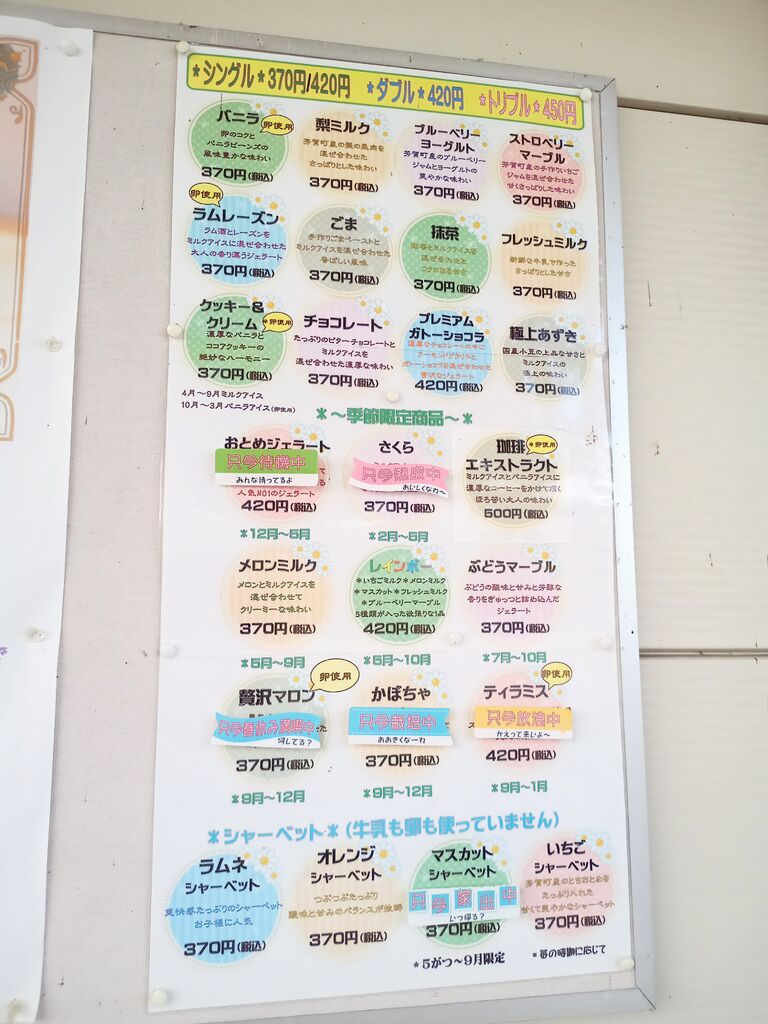 *シングル*370円/420円 *ダブル*420円 *トリプル*450円
バニラ
卵使用
卵のコクと
バニラビーンズの
風味豊かな味わい
370円(税込)
梨ミルク
芳賀町産の梨の果肉を
混ぜ合わせた
さっぱりとした味わい
370円(税込)
ブルーベリー
ヨーグルト
芳賀町産のブルーベリー
ジャムとヨーグルトの
爽やかな味わい
370円(税込)
ストロベリー
マーブル
芳賀町産の手作りいちご
ジャムを混ぜ合わせた
甘くさっぱりした味わい
370円(税込)
卵使用
ラムレーズン
ラム酒とレーズンを
ミルクアイスに混ぜ合わせた
大人の香り漂うジェラート
370円(税込)
ごま
手作りごまペーストと
ミルクアイスを混ぜ合わせた
香ばしい風味
370円(税込)
抹茶
抹茶とミルクアイスを
混ぜ合わせた
コクのある甘さ
370円(税込)
フレッシュミルク
新鮮な牛乳で作った
さっぱりとした甘さ
370円(税込)
クッキー&
クリーム
*卵使用
濃厚なバニラと
ココアクッキーの
絶妙なハーモニー
370円(税込)
4月〜9月ミルクアイス
10月〜3月バニラアイス(卵使用)
チョコレート
たっぷりのビターチョコレートと
ミルクアイスを
混ぜ合わせた濃厚な味わい
370円(税込)
プレミアム
ガトーショコラ
濃厚なチョコレートの中に
アーモンドプラリネと
ガトーショコラを混ぜ合わせた
贅沢なジェラート
420円(税込)
極上あずき
国産小豆の上品な甘さと
ミルクアイスの
極上の味わい
370円(税込)
*〜季節限定商品〜*
おとめジェラート
只今待機中
みんな待ってるよ
人気NO1のジェラート
420円(税込)
*12月〜5月
さくら
只今熟成中
おいしくなれ〜
370円(税込)
*2月〜5月
珈琲
*卵使用
エキストラクト
ミルクアイスとバニラアイスに
濃厚なコーヒーをかけて頂く
ほろ苦い大人の味わい
500円(税込)
メロンミルク
メロンとミルクアイスを
混ぜ合わせて
クリーミーな味わい
370円(税込)
*5月〜9月
レインボー
*いちごミルク*メロンミルク
*マスカット*フレッシュミルク
*ブルーベリーマーブル
5種類が入った欲張りな1品
420円(税込)
*5月〜10月
ぶどうマーブル
ぶどうの酸味と甘みと芳醇な
香りをぎゅっと詰め込んだ
ジェラート
370円(税込)
*7月〜10月
贅沢マロン
卵使用
只今夏休み満喫中
何してる?
370円(税込)
*9月〜12月
かぼちゃ
只今栽培中
おおきくなーれ
370円(税込)
*9月〜12月
ティラミス
卵使用
只今放浪中
かえって来いよ〜
420円(税込)
*9月〜1月
*シャーベット*(牛乳も卵も使っていません)
ラムネ
シャーベット
爽快感たっぷりのシャーベット
お子様に人気
370円(税込)
オレンジ
シャーベット
つぶつぶたっぷり
酸味と甘みのバランスが抜群
370円(税込)
マスカット
シャーベット
只今家出中
いつ帰る?
370円(税込)
*5がつ〜9月限定
いちご
シャーベット
芳賀町産のとちおとめを
たっぷり入れた
甘くて爽やかなシャーベット
370円(税込)
*苺の時期に応じて